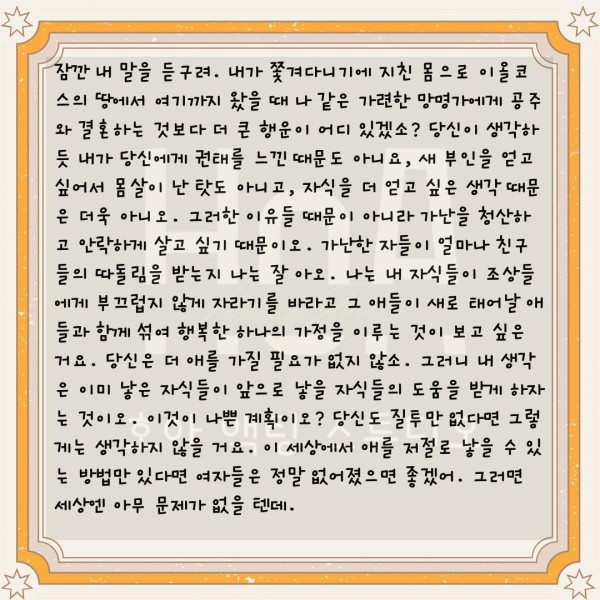 잠깐 내 말을 듣구려. 내가 쫓겨다니기에 지친 몸으로 이올코
스의 땅에서 여기까지 왔을 때 나 같은 가련한 망명가에게 공주
와 결혼하는 것보다 더 큰 행운이 어디 있겠소? 당신이 생각하
듯 내가 당신에게 권태를 느낀 때문도 아니요, 새 부인을 얻고
싶어서 몸살이 난 탓도 아니고, 자식을 더 얻고 싶은 생각 때문
은 더욱 아니오. 그러한 이유들 때문이 아니라 가난을 청산하
고 안락하게 살고 싶기 때문이오. 가난한 자들이 얼마나 친구
들의 따돌림을 받는지 나는 잘 아오. 나는 내 자식들이 조상들
에게 부끄럽지 않게 자라기를 바라고 그 애들이 새로 태어날 애
들과 함께 섞여 행복한 하나의 가정을 이루는 것이 보고 싶은
거요. 당신은 더 애를 가질 필요가 없지 않소. 그러니 내 생각
은 이미 낳은 자식들이 앞으로 낳을 자식들의 도움을 받게 하자
는 것이오. 이것이 나쁜 계획이오? 당신도 질투만 없다면 그렇
게는 생각하지 않을 거요. 이 세상에서 애를 저절로 낳을 수 있
는 방법만 있다면 여자들은 정말 없어졌으면 좋겠어. 그러면
세상엔 아무 문제가 없을 텐데.
HnA
흐아 액팅 스튜디오